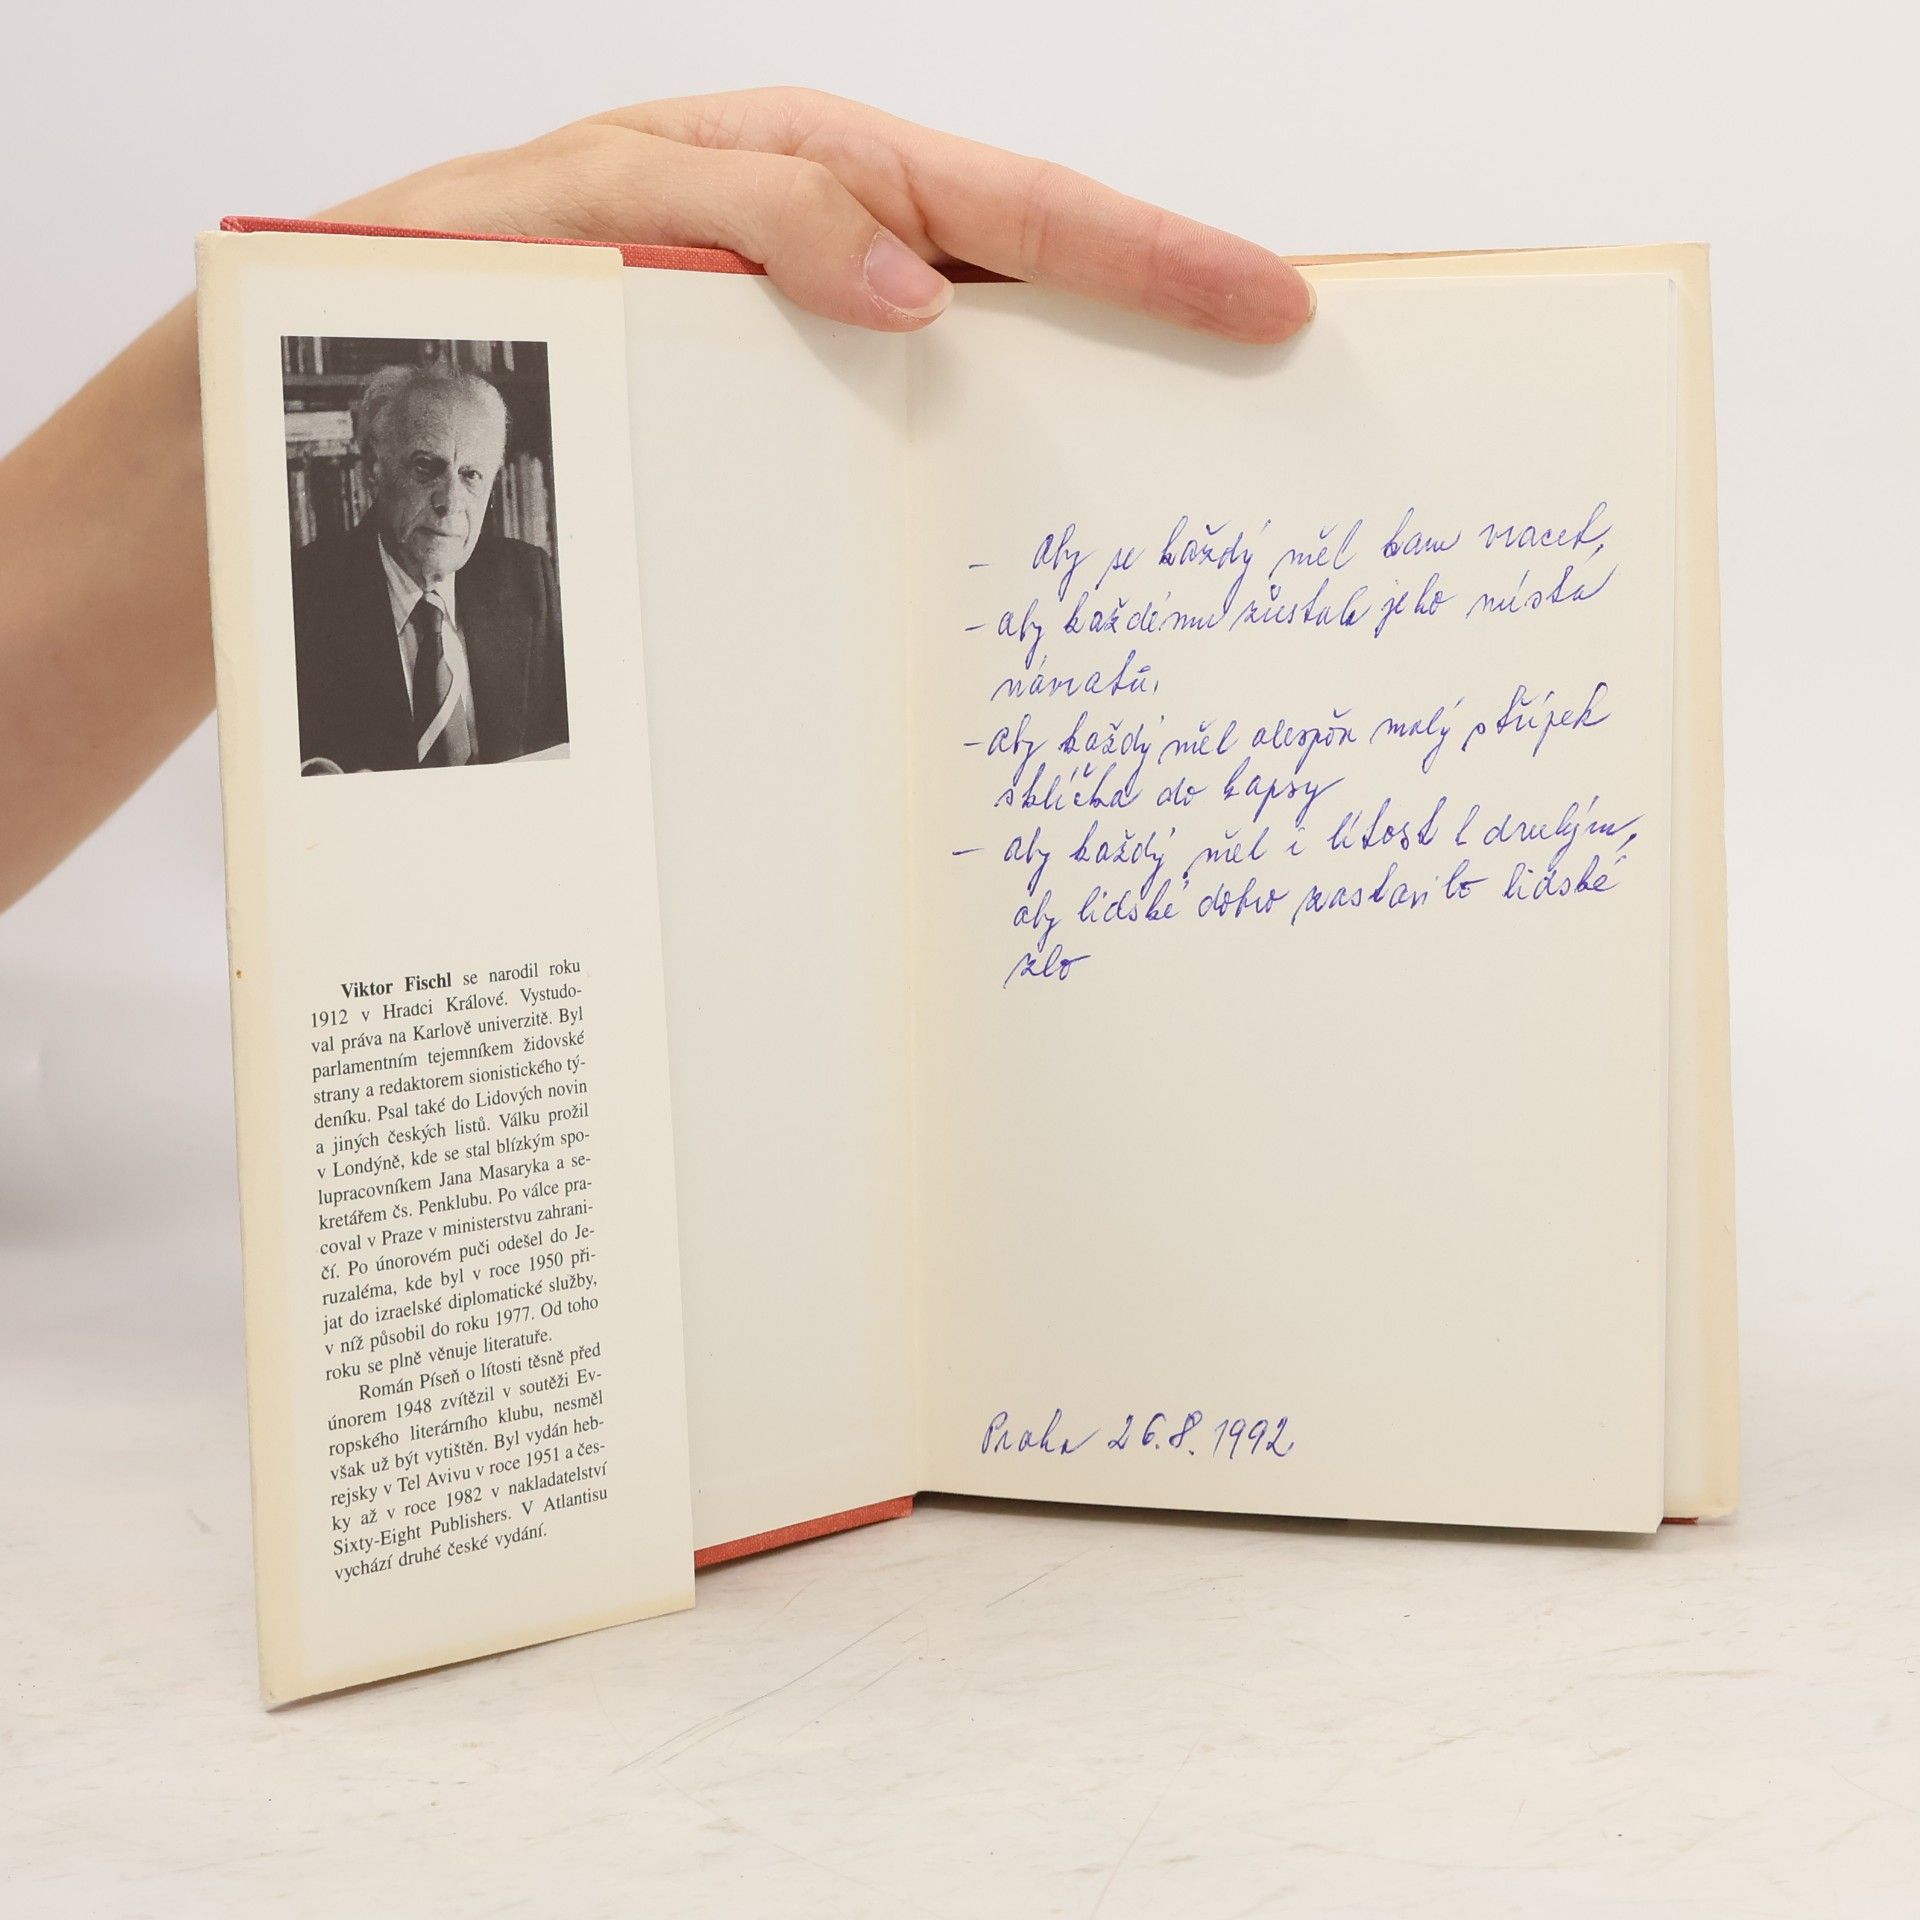 Viktor Fischl se narodil roku
1912 v Hradci Králové. Vystudo-
val práva na Karlově univerzitě. Byl
parlamentním tejemníkem židovské
strany a redaktorem sionistického tý-
deníku. Psal také do Lidových novin
a jiných českých listů. Válku prožil
v Londýně, kde se stal blízkým spo-
lupracovníkem Jana Masaryka a se-
kretářem čs. Penklubu. Po válce pra-
coval v Praze v ministerstvu zahrani-
čí. Po únorovém puči odešel do Je-
ruzaléma, kde byl v roce 1950 při-
jat do izraelské diplomatické služby,
v níž působil do roku 1977. Od toho
roku se plně věnuje literatuře.
Román Píseň o lítosti těsně před
únorem 1948 zvítězil v soutěži Ev-
ropského literárního klubu, nesměl
však už být vytištěn. Byl vydán heb-
rejsky v Tel Avivu v roce 1951 a čes-
ky až v roce 1982 v nakladatelství
Sixty-Eight Publishers. V Atlantisu
vychází druhé české vydání.
- aby se každý měl kam vracet,
- aby každému zůstala jeho místa
návratů,
- aby každý měl alespoň malý střípek
sklíčka do kapsy
- aby každý měl i lítost k druhým,
aby lidské dobro zastavilo lidské
zlo
Praha 26.8.1992